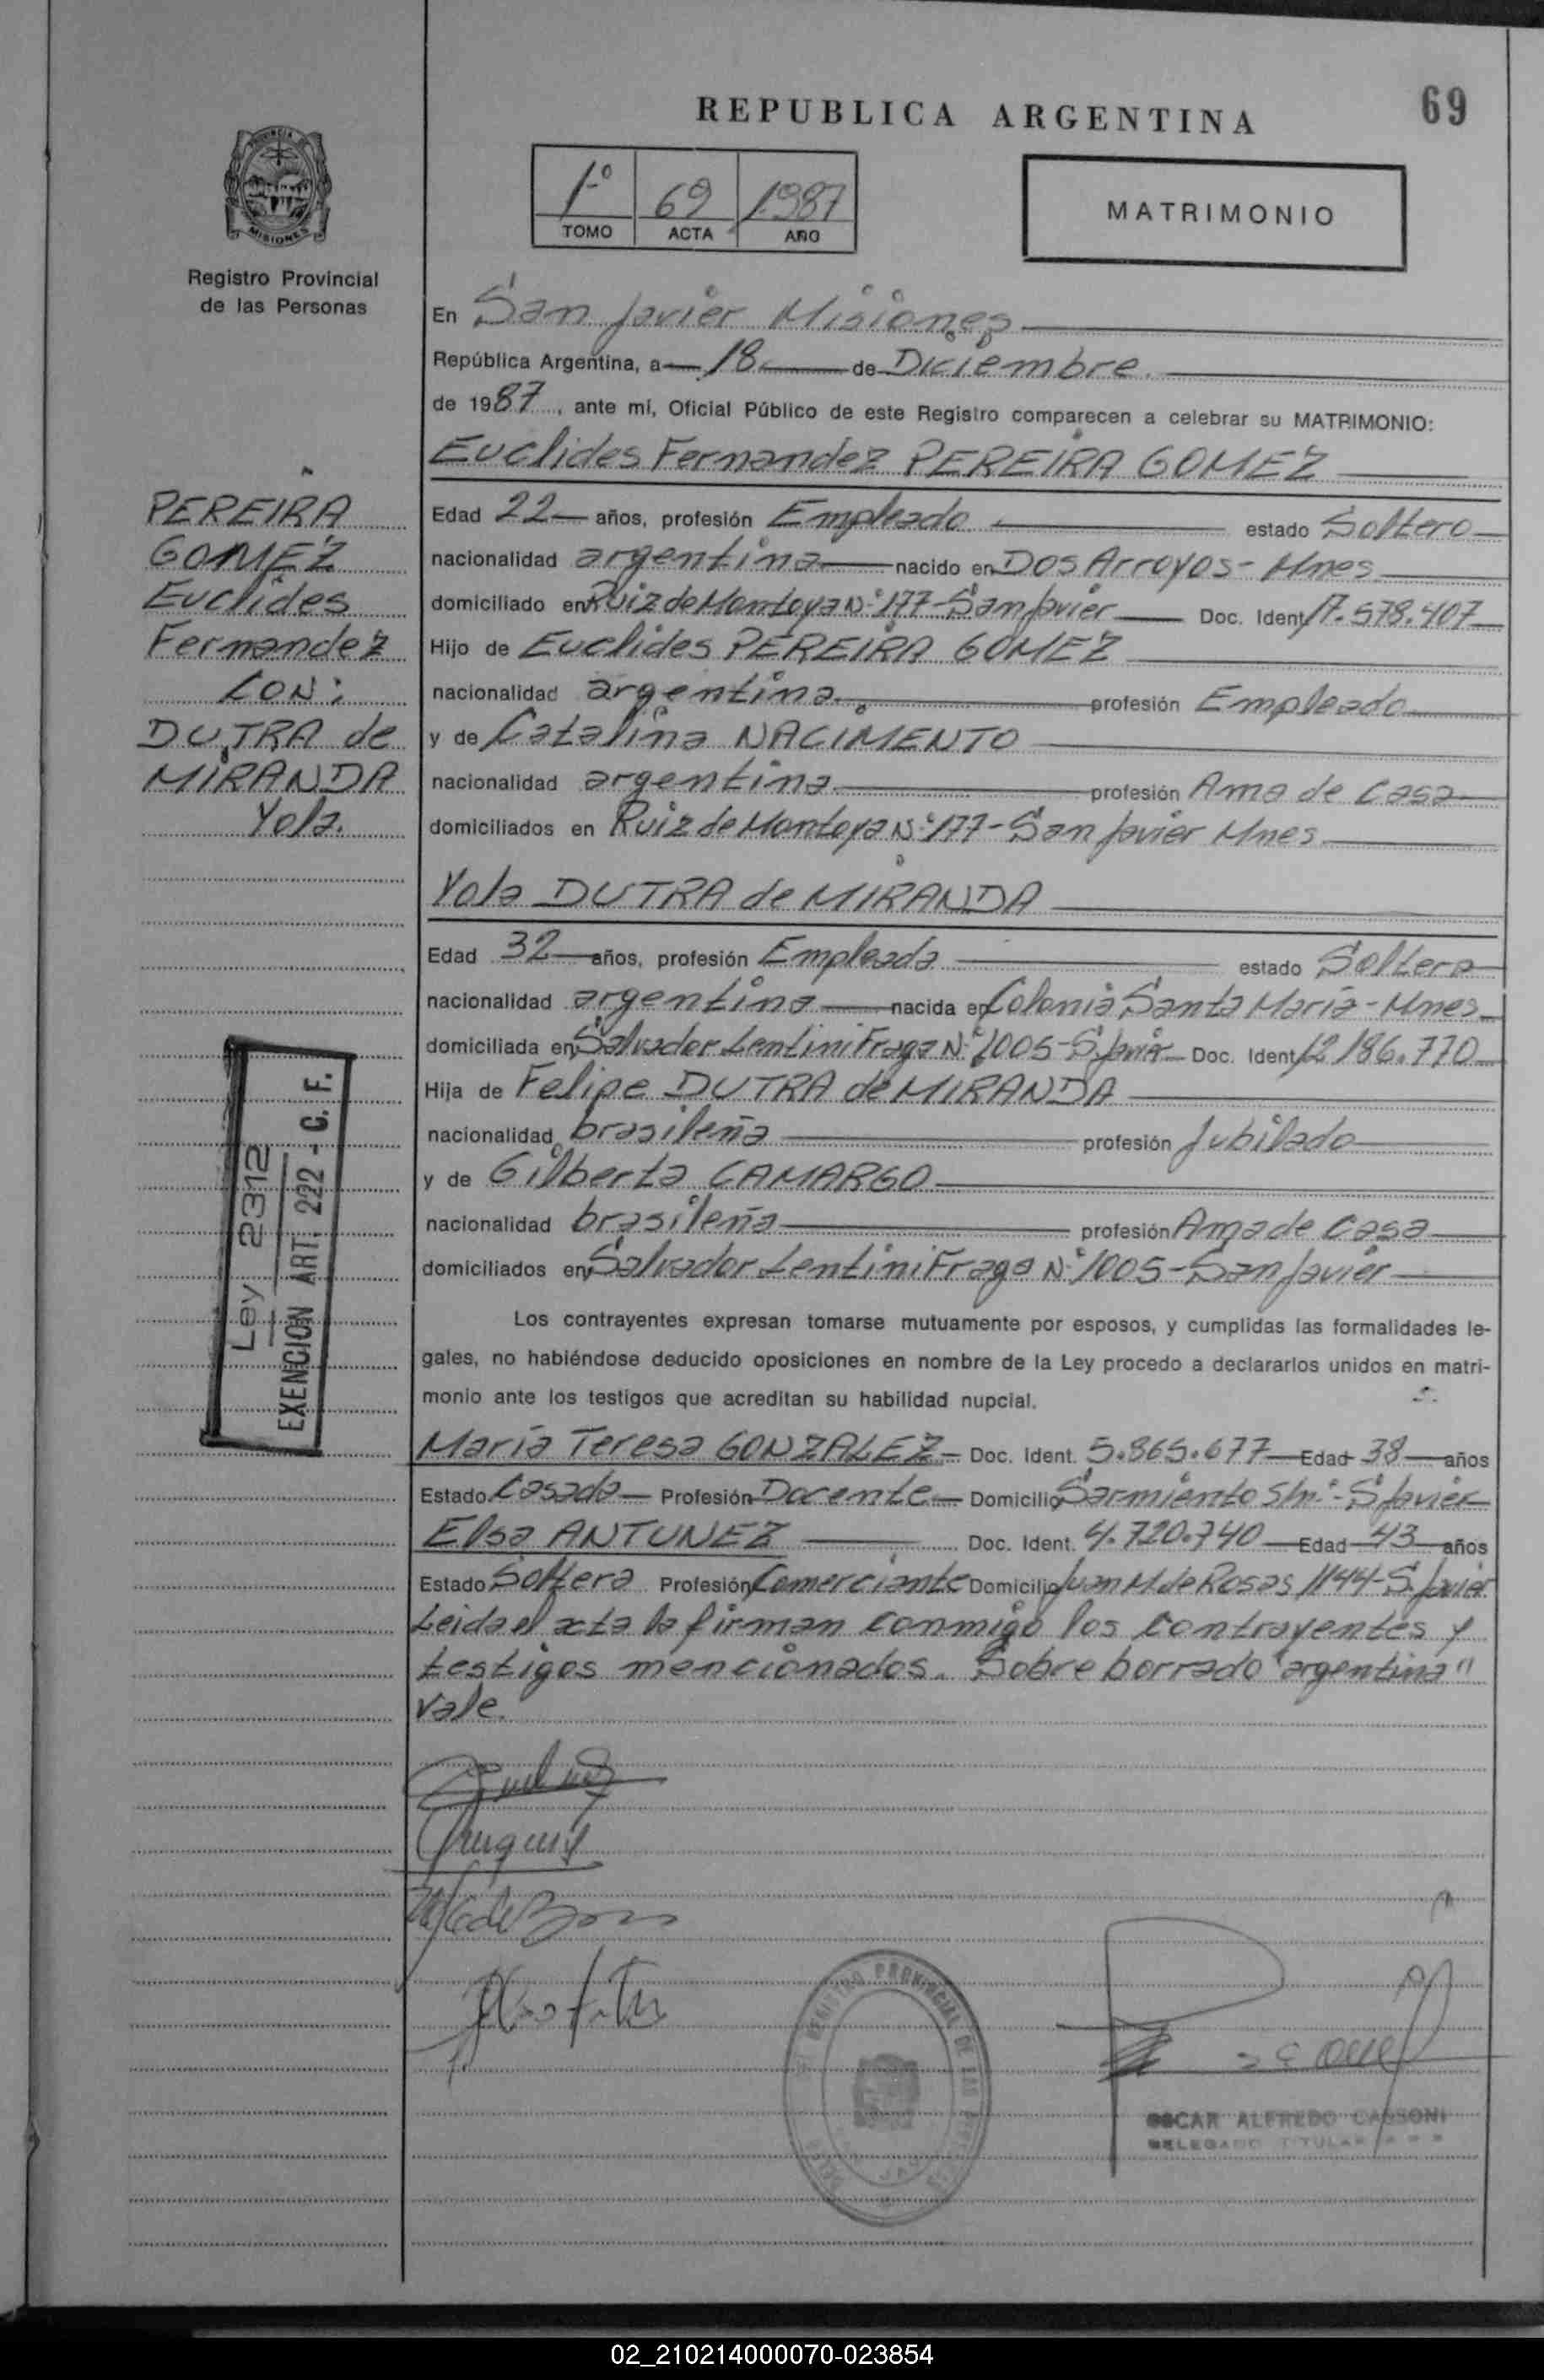 69
REPUBLICA ARGENTINA
1º 69 1987
TOMO ACTA AÑO
MATRIMONIO
PROVINCIA
MISIONES
Registro Provincial
de las Personas
PEREIRA
GOMEZ
Euclides
Fernandez
CON:
DUTRA de
MIRANDA
Yola.
Ley 2312
EXENCION ART. 222 - C. F.
En San Javier Misiones
República Argentina, a 18 de Diciembre.
de 1987, ante mí, Oficial Público de este Registro comparecen a celebrar su MATRIMONIO:
Euclides Fernandez PEREIRA GOMEZ
Edad 22 años, profesión Empleado estado Soltero
nacionalidad argentina nacido en Dos Arroyos - Mnes
domiciliado en Ruiz de Montoya Nº 177 - San Javier Doc. Ident. 17.578.407
Hijo de Euclides PEREIRA GOMEZ
nacionalidad argentina profesión Empleado
y de Catalina NACIMENTO
nacionalidad argentina profesión Ama de Casa
domiciliados en Ruiz de Montoya Nº 177 - San Javier Mnes
Yola DUTRA de MIRANDA
Edad 32 años, profesión Empleada estado Soltera
nacionalidad argentina nacida en Colonia Santa María - Mnes
domiciliada en Salvador Lentini Fraga Nº 1005 - S. Javier Doc. Ident. 12.186.770
Hija de Felipe DUTRA de MIRANDA
nacionalidad brasileña profesión Jubilado
y de Gilberta CAMARGO
nacionalidad brasileña profesión Ama de Casa
domiciliados en Salvador Lentini Fraga Nº 1005 - San Javier
Los contrayentes expresan tomarse mutuamente por esposos, y cumplidas las formalidades le-
gales, no habiéndose deducido oposiciones en nombre de la Ley procedo a declararlos unidos en matri-
monio ante los testigos que acreditan su habilidad nupcial.
María Teresa GONZALEZ Doc. Ident. 5.865.677 Edad 38 años
Estado Casada Profesión Docente Domicilio Sarmiento S/nº - S. Javier
Elsa ANTUNEZ Doc. Ident. 4.720.740 Edad 43 años
Estado Soltera Profesión Comerciante Domicilio Juan M. de Rosas 1144 - S. Javier
Leida el acta la firman conmigo los contrayentes y
testigos mencionados. Sobre borrado "argentina"
Vale.
REGISTRO PROVINCIAL DE LAS
OSCAR ALFREDO CASSONI
DELEGADO TITULAR
02_210214000070-023854